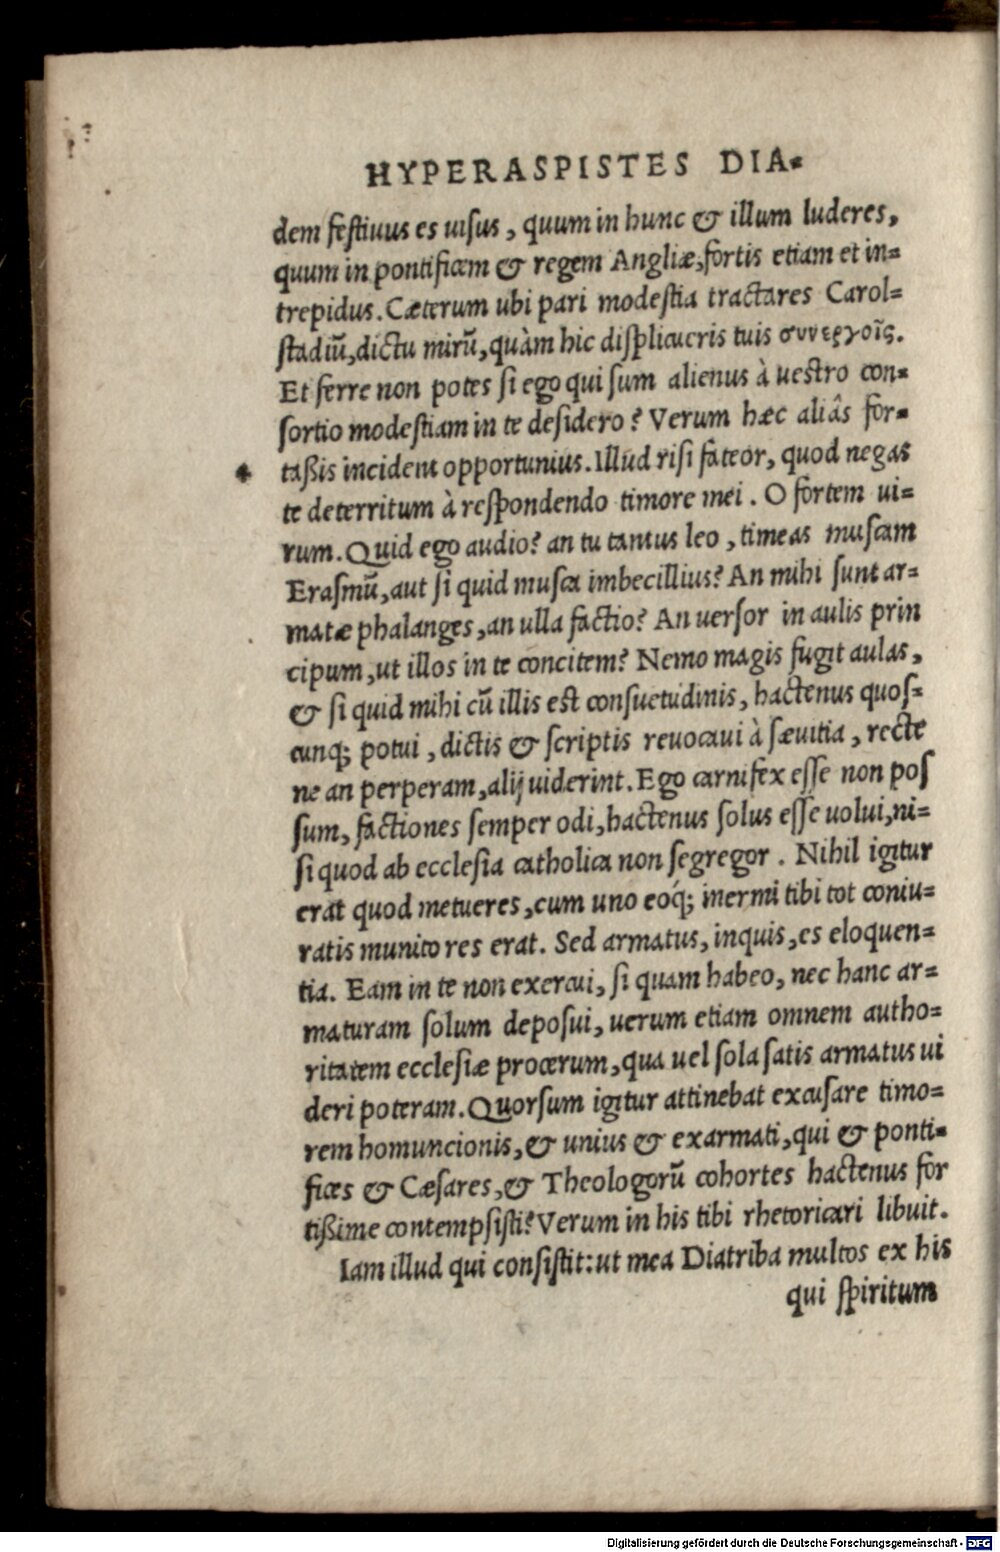 HYPERASPISTES DIA-
dem festiuus es uisus, quum in hunc & illum luderes,
quum in pontificem & regem Angliæ, fortis etiam et in-
trepidus. Cæterum ubi pari modestia tractares Carol-
stadiū, dictu mirū, quàm hic displicueris tuis συνεργοῖς.
Et ferre non potes si ego qui sum alienus à uestro con-
sortio modestiam in te desidero? Verum hæc aliâs for-
taßis incident opportunius. Illud risi fateor, quod negas
te deterritum à respondendo timore mei. O fortem ui-
rum. Quid ego audio? an tu tantus leo, timeas muscam
Erasmū, aut si quid musca imbecillius? An mihi sunt ar-
matæ phalanges, an ulla factio? An uersor in aulis prin
cipum, ut illos in te concitem? Nemo magis fugit aulas,
& si quid mihi cū illis est consuetudinis, hactenus quos-
cunq; potui, dictis & scriptis reuocaui à sæuitia, recte
ne an perperam, alij uiderint. Ego carnifex esse non pos
sum, factiones semper odi, hactenus solus esse uolui, ni-
si quod ab ecclesia catholica non segregor. Nihil igitur
erat quod metueres, cum uno eóq; inermi tibi tot coniu-
ratis munito res erat. Sed armatus, inquis, es eloquen-
tia. Eam in te non exercui, si quam habeo, nec hanc ar-
maturam solum deposui, uerum etiam omnem autho-
ritatem ecclesiæ procerum, qua uel sola satis armatus ui
deri poteram. Quorsum igitur attinebat excusare timo-
rem homuncionis, & unius & exarmati, qui & ponti-
fices & Cæsares, & Theologorū cohortes hactenus for
tißime contempsisti? Verum in his tibi rhetoricari libuit.
Iam illud qui consistit: ut mea Diatriba multos ex his
qui spiritum
Digitalisierung gefördert durch die Deutsche Forschungsgemeinschaft - DFG